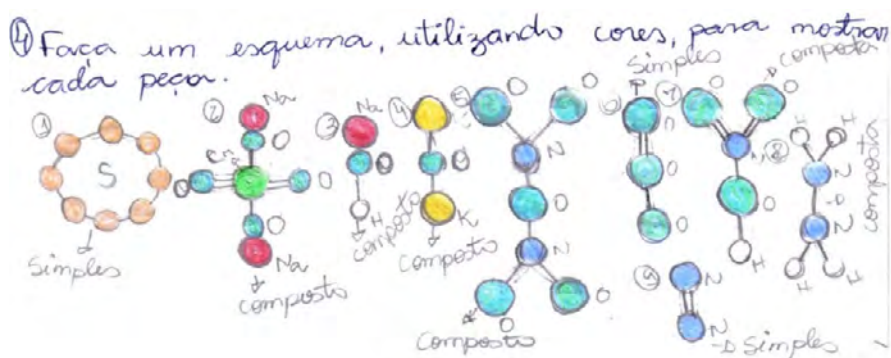 ④ Faça um esquema, utilizando cores, para mostrar
cada peça.
① S
simples
② Na
O
O O
O
Na
composto
③ Na
O
H
composto
④
O
K
composto
⑤ O O
N
O
N
O O
composto
⑥ simples
O
O
O
⑦ O O composta
N
O
H
⑧ H H
N
N
H H
composta
⑨ N
N
simples